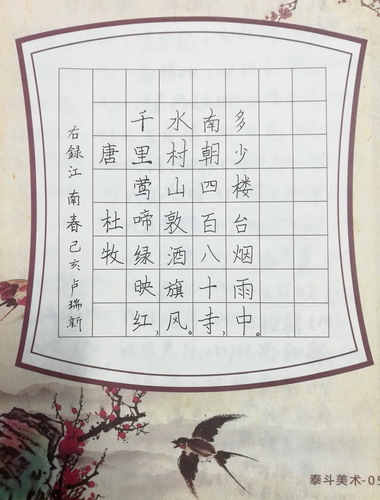 唐 杜牧
千里莺啼绿映红,
水村山敦酒旗风。
南朝四百八十寺,
多少楼台烟雨中。
右録江南春己亥卢瑞新